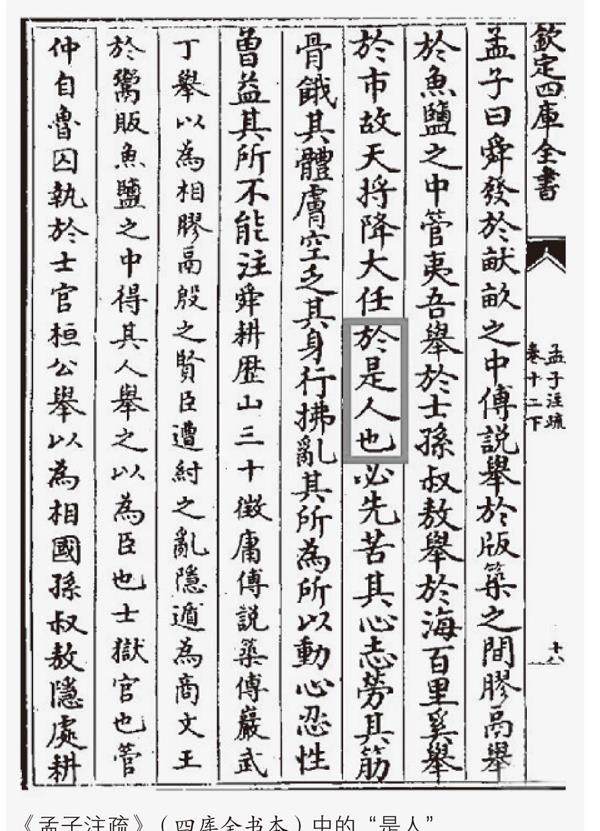 欽定四庫全書
孟子注疏
卷十二下
十八
孟子曰舜發於畎畝之中傅説舉於版築之間膠鬲舉
於魚鹽之中管夷吾舉於士孫叔敖舉於海百里奚舉
於市故天將降大任於是人也必先苦其心志勞其筋
骨餓其體膚空乏其身行拂亂其所為所以動心忍性
曾益其所不能注舜耕歷山三十徵庸傅説築傅巖武
丁舉以為相膠鬲殷之賢臣遭紂之亂隱遁為商文王
於鬻販魚鹽之中得其人舉之以為臣也士獄官也管
仲自魯囚執於士官桓公舉以為相國孫叔敖隱處耕
《孟子注疏》（四库全书本）中的“是人”